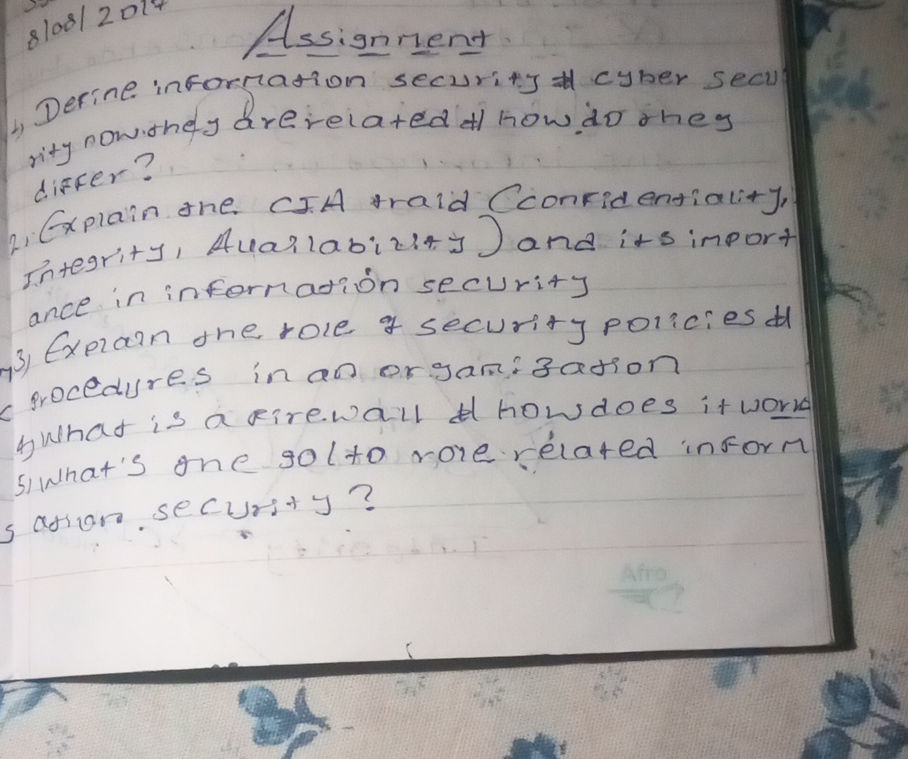 8/08/2017
Assignment
1, Define information security & cyber secu
rity now they are related & how do they
differ?
2, Explain the CIA traid (Cconfidentiality,
Integrity, Availability) and its import
ance in information security
3, Explain the role of security policies &
procedures in an organization
4, what is a firewall & how does it work
5, what's the gol to role related inform
ation security?
Afro